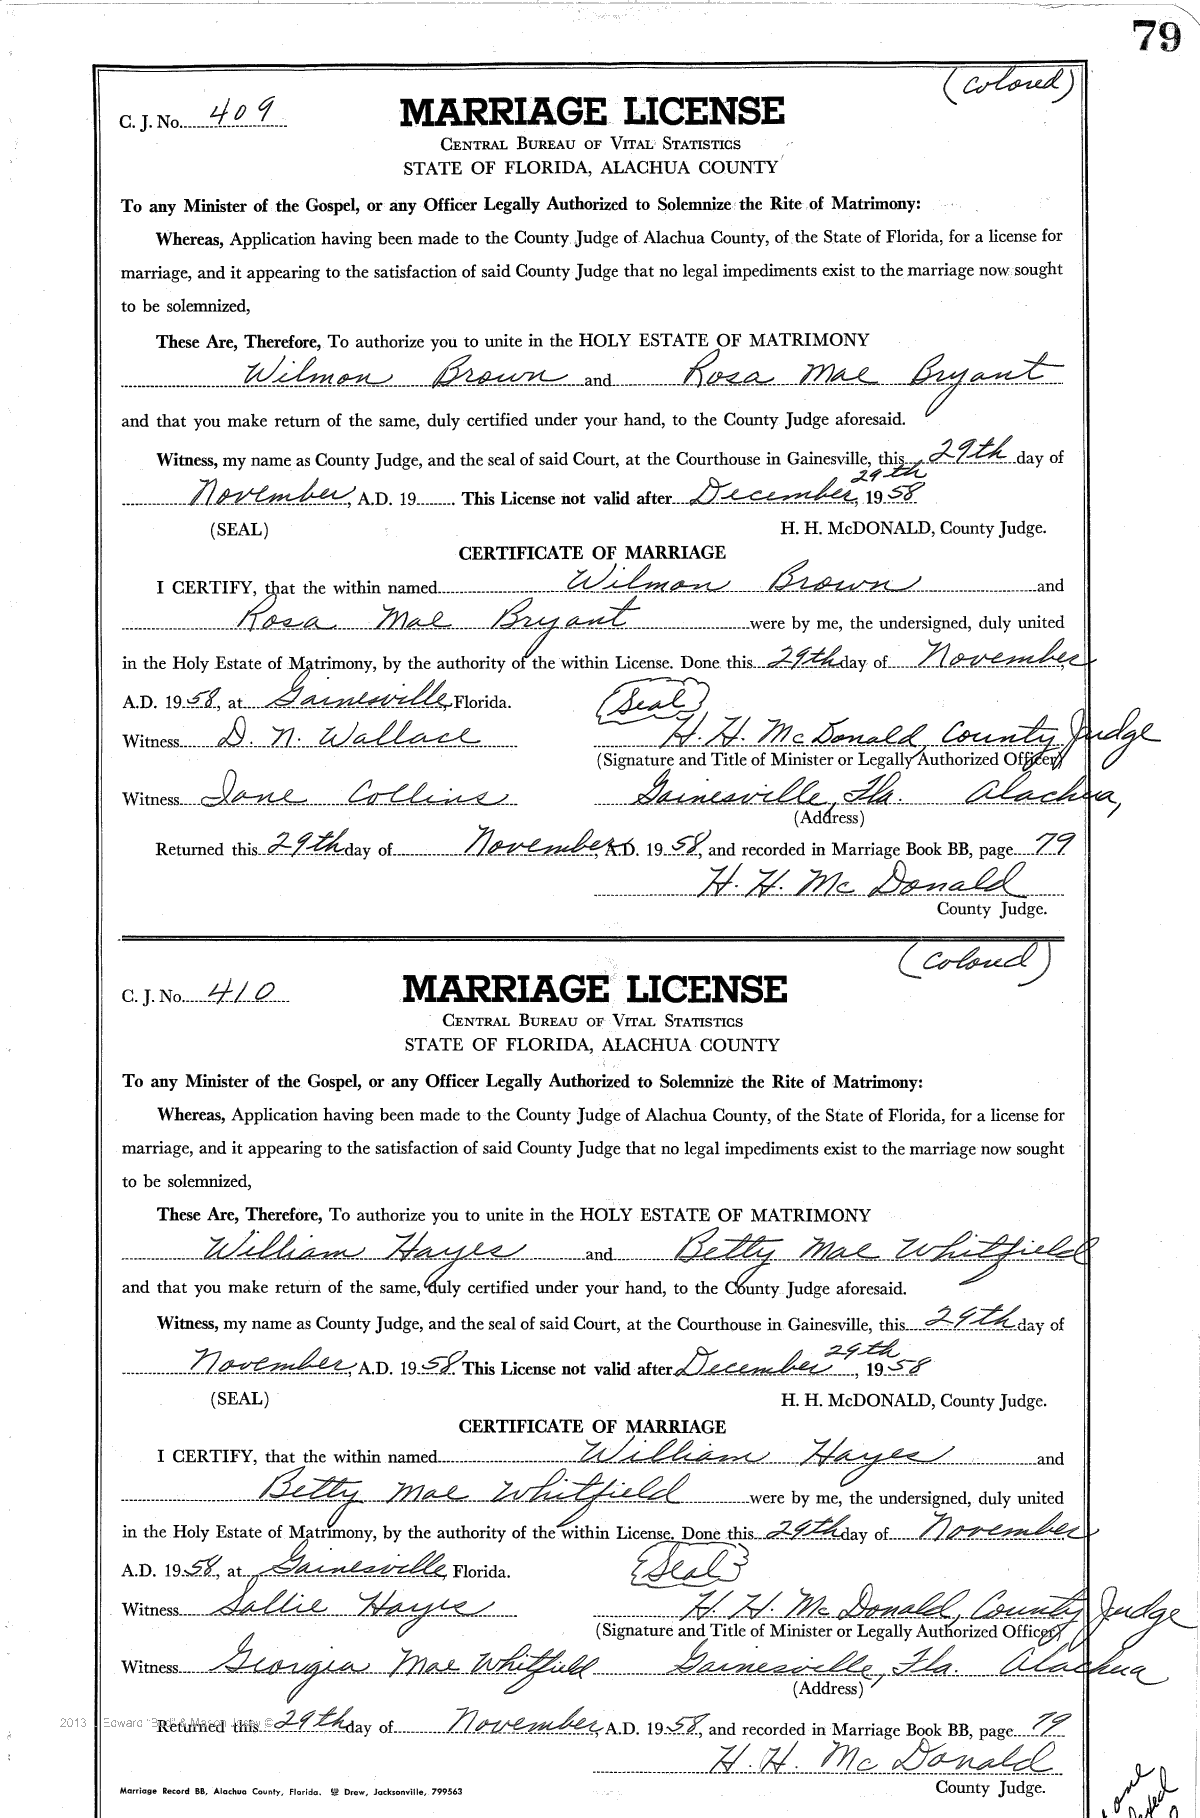 79
(Colored)
C. J. No. 409
MARRIAGE LICENSE
CENTRAL BUREAU OF VITAL STATISTICS
STATE OF FLORIDA, ALACHUA COUNTY
To any Minister of the Gospel, or any Officer Legally Authorized to Solemnize the Rite of Matrimony:
Whereas, Application having been made to the County Judge of Alachua County, of the State of Florida, for a license for
marriage, and it appearing to the satisfaction of said County Judge that no legal impediments exist to the marriage now sought
to be solemnized,
These Are, Therefore, To authorize you to unite in the HOLY ESTATE OF MATRIMONY
Wilmon Brown and Rosa Mae Bryant
and that you make return of the same, duly certified under your hand, to the County Judge aforesaid.
Witness, my name as County Judge, and the seal of said Court, at the Courthouse in Gainesville, this 29th day of
November, A.D. 19 This License not valid after December 29th, 1958
(SEAL) H. H. McDONALD, County Judge.
CERTIFICATE OF MARRIAGE
I CERTIFY, that the within named Wilmon Brown and
Rosa Mae Bryant were by me, the undersigned, duly united
in the Holy Estate of Matrimony, by the authority of the within License. Done this 29th day of November,
A.D. 1958, at Gainesville, Florida. (Seal)
Witness D. N. Wallace H. H. McDonald, County Judge
(Signature and Title of Minister or Legally Authorized Officer)
Witness Jane Collins Gainesville, Fla. Alachua,
(Address)
Returned this 29th day of November, A.D. 1958, and recorded in Marriage Book BB, page 79
H. H. McDonald
County Judge.
(Colored)
C. J. No. 410
MARRIAGE LICENSE
CENTRAL BUREAU OF VITAL STATISTICS
STATE OF FLORIDA, ALACHUA COUNTY
To any Minister of the Gospel, or any Officer Legally Authorized to Solemnize the Rite of Matrimony:
Whereas, Application having been made to the County Judge of Alachua County, of the State of Florida, for a license for
marriage, and it appearing to the satisfaction of said County Judge that no legal impediments exist to the marriage now sought
to be solemnized,
These Are, Therefore, To authorize you to unite in the HOLY ESTATE OF MATRIMONY
William Hayes and Betty Mae Whitfield
and that you make return of the same, duly certified under your hand, to the County Judge aforesaid.
Witness, my name as County Judge, and the seal of said Court, at the Courthouse in Gainesville, this 29th day of
November, A.D. 1958. This License not valid after December 29th, 1958
(SEAL) H. H. McDONALD, County Judge.
CERTIFICATE OF MARRIAGE
I CERTIFY, that the within named William Hayes and
Betty Mae Whitfield were by me, the undersigned, duly united
in the Holy Estate of Matrimony, by the authority of the within License. Done this 29th day of November
A.D. 1958, at Gainesville, Florida. (Seal)
Witness Sallie Hayes H. H. McDonald, County Judge
(Signature and Title of Minister or Legally Authorized Officer)
Witness Georgia Mae Whitfield Gainesville, Fla. Alachua
(Address)
2013 Edward & Mason
Returned this 29th day of November, A.D. 1958, and recorded in Marriage Book BB, page 79
H. H. McDonald
County Judge.
Marriage Record BB, Alachua County, Florida. Drew, Jacksonville, 799563